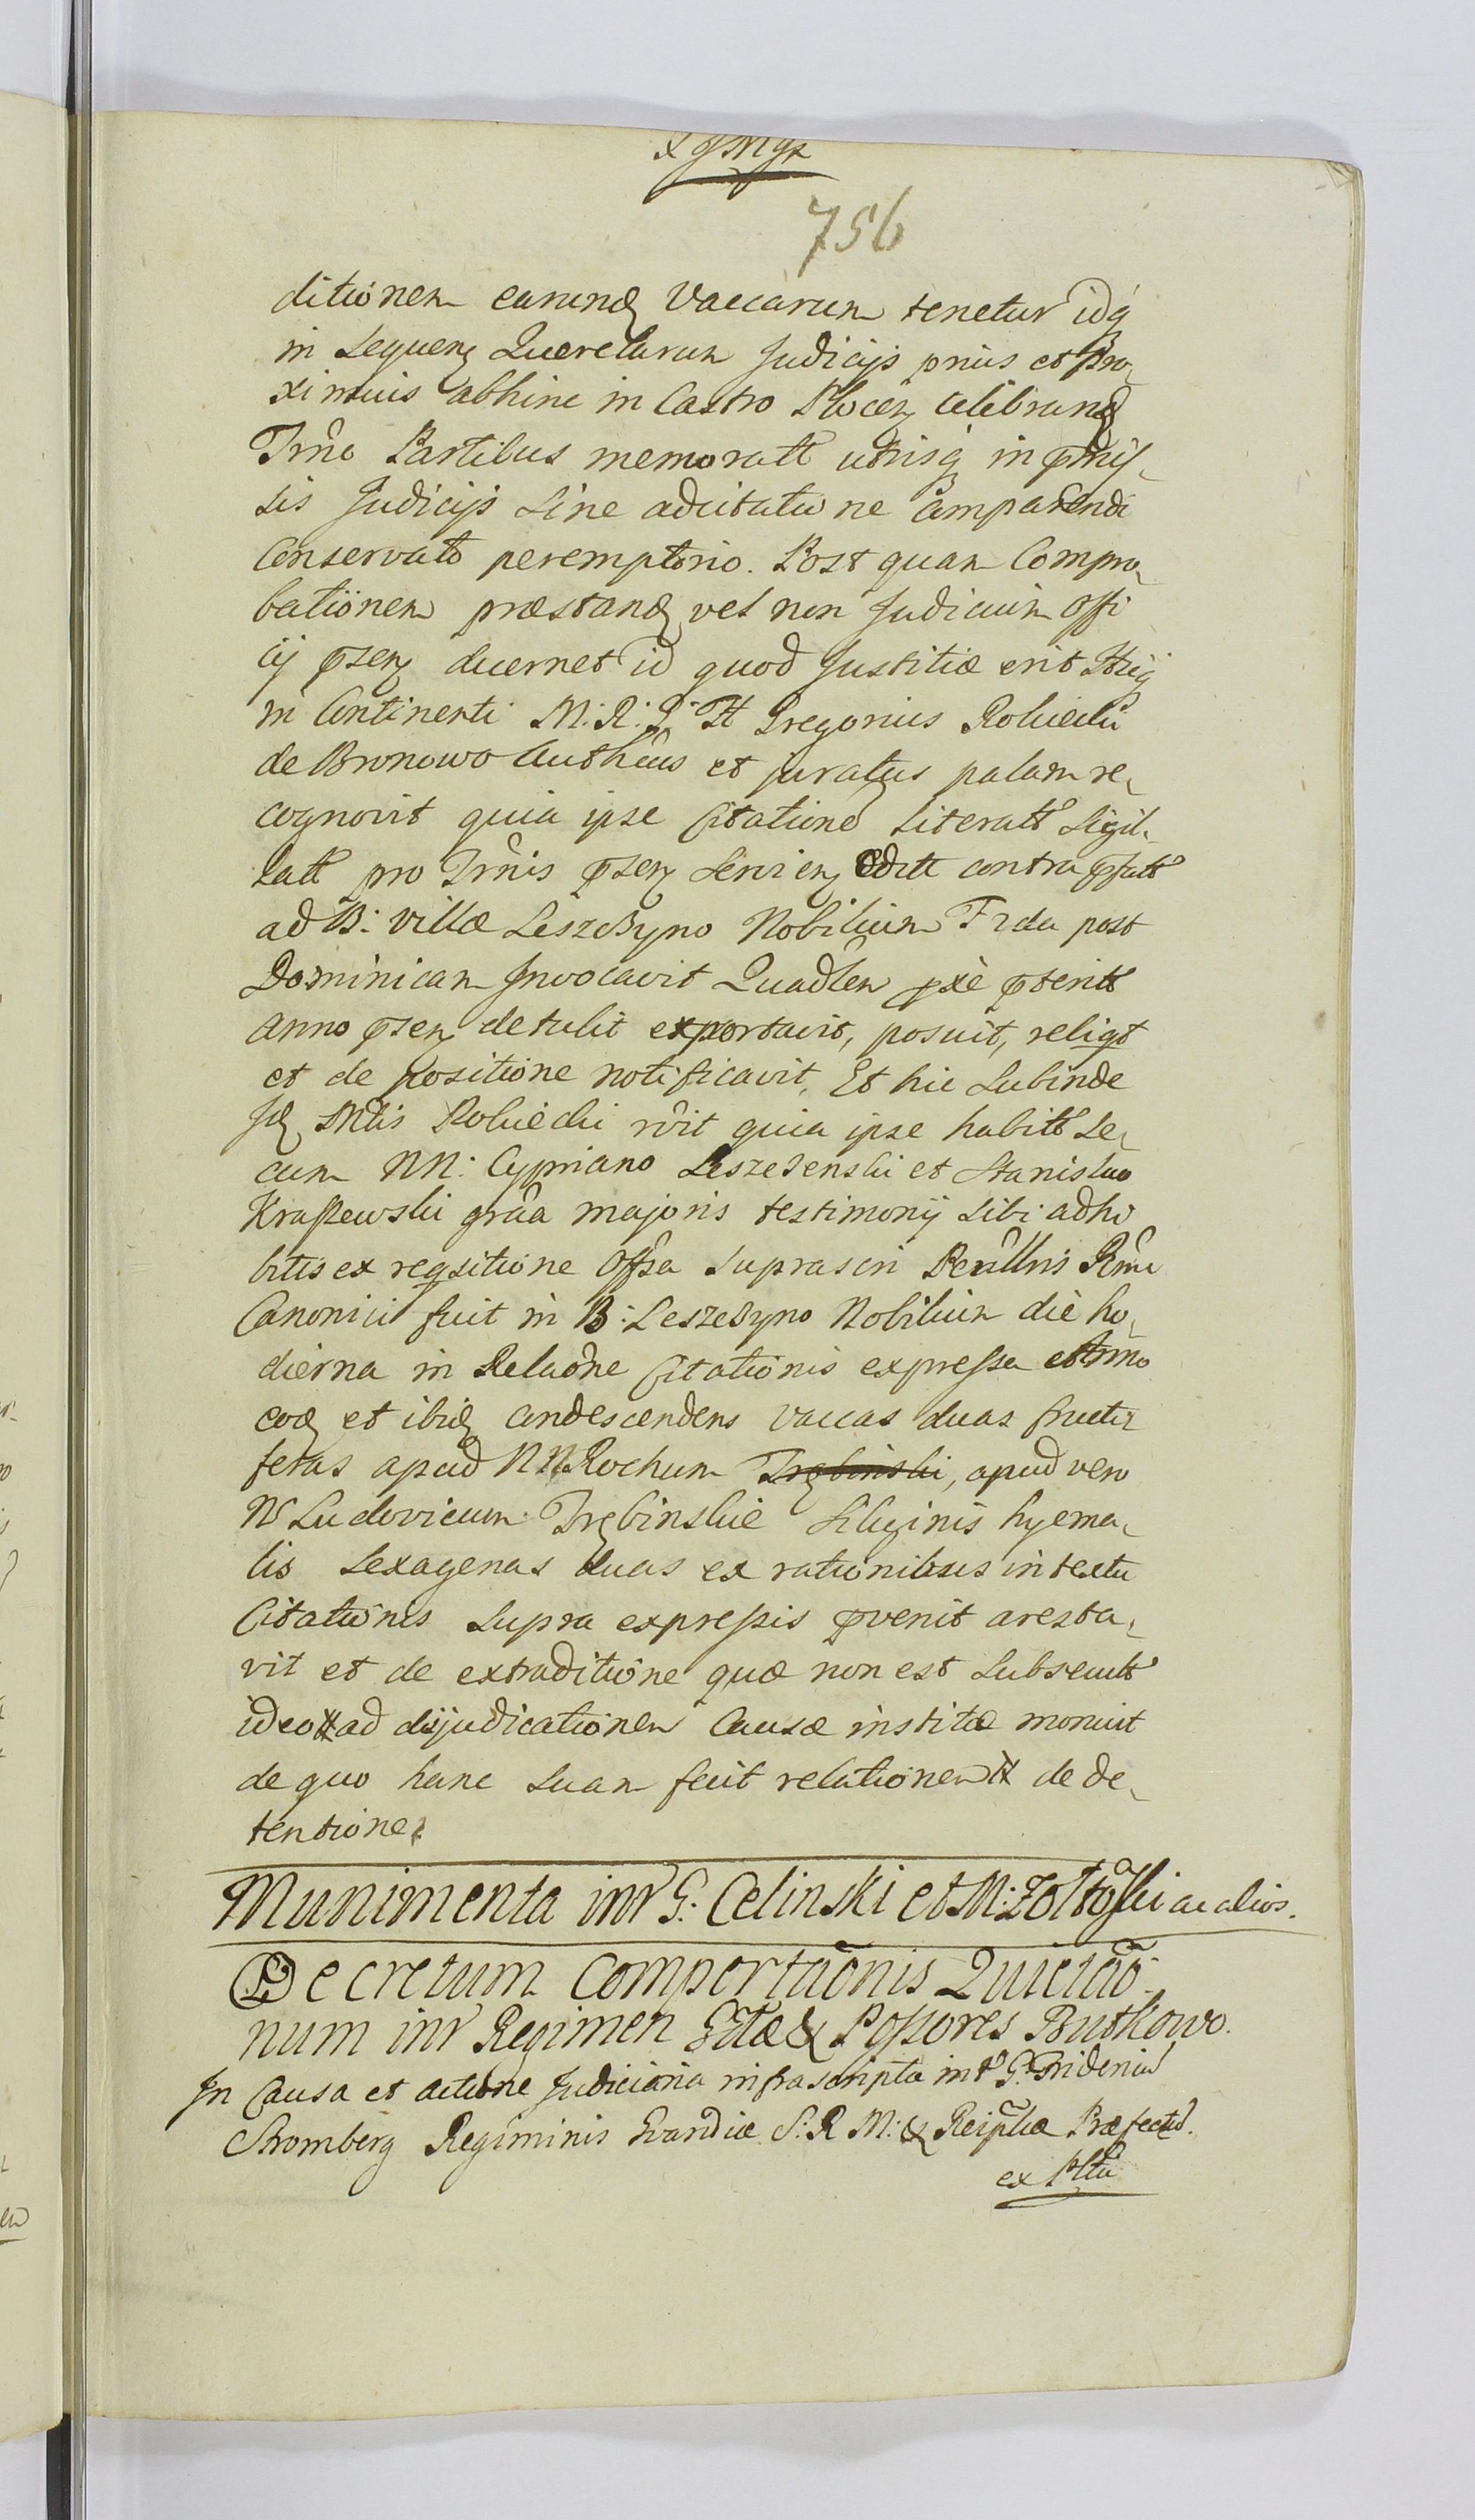 756
ditionem earund Vaccarum tenetur idq
in sequen Querelarum Judicijs prius et pro
ximius abhinc in Castro Plocen celebrand
Trno Partibus memoratt utrisq in pmis
sis Judicijs sine adcitatione comparendi
Conservato peremptorio. Post quam Compro
bationem præstand vel non Judicium offi
cij psen decernet id quod Justitiæ erit
in Continenti M: R: Gregorius Robiecki
de Bronowo Authcus et juratus palam re
cognovit quia ipse Citatione Literatt Sigil
latt pro Trnis psen serien edit contra pfatt
ad B: villæ Leszczyno Nobilium Frda post
Dominicam Invocavit Quadlem pxe pterit
anno psen detulit exportavit, posuit, reliqt
et de positione notificavit. Et hic subinde
Id Mtis Robiecki rvit quia ipse habitt Se
cum NN: Cypriano Leszczenski et Stanislao
Kraszewski grâa majoris testimonij sibi adhi
bitis ex reqsitione Offsa suprascri Perillris Rmi
Canonici fuit in B: Leszczyno Nobilium die ho
dierna in Relaõne Citationis expressa et Anno
eod et ibid condescendens vaccas duas fructi
feras apud NN Rochum Trębinski, apud vero
N Ludovicum Trębinskie siliginis hyema
lis sexagenas duas ex rationibus in textu
Citationis supra expressis pvenit aresta
vit et de extraditione quæ non est subsecutt
ideo ad dijudicationem Causæ institæ monuit
de quo hanc suam fecit relationem de de
tentione.
Munimenta intr G: Celinski et M: Zoltowski ac alios.
Decretum Comportaõnis Quietaõ
num intr Regimen Gdiæ & Possores Butkowo.
In Causa et actione Judiciaria infrascripta intr G: Fridericum
Stromberg Regiminis Gvardiæ S: R M: & Reiplicæ Præfectum
ex